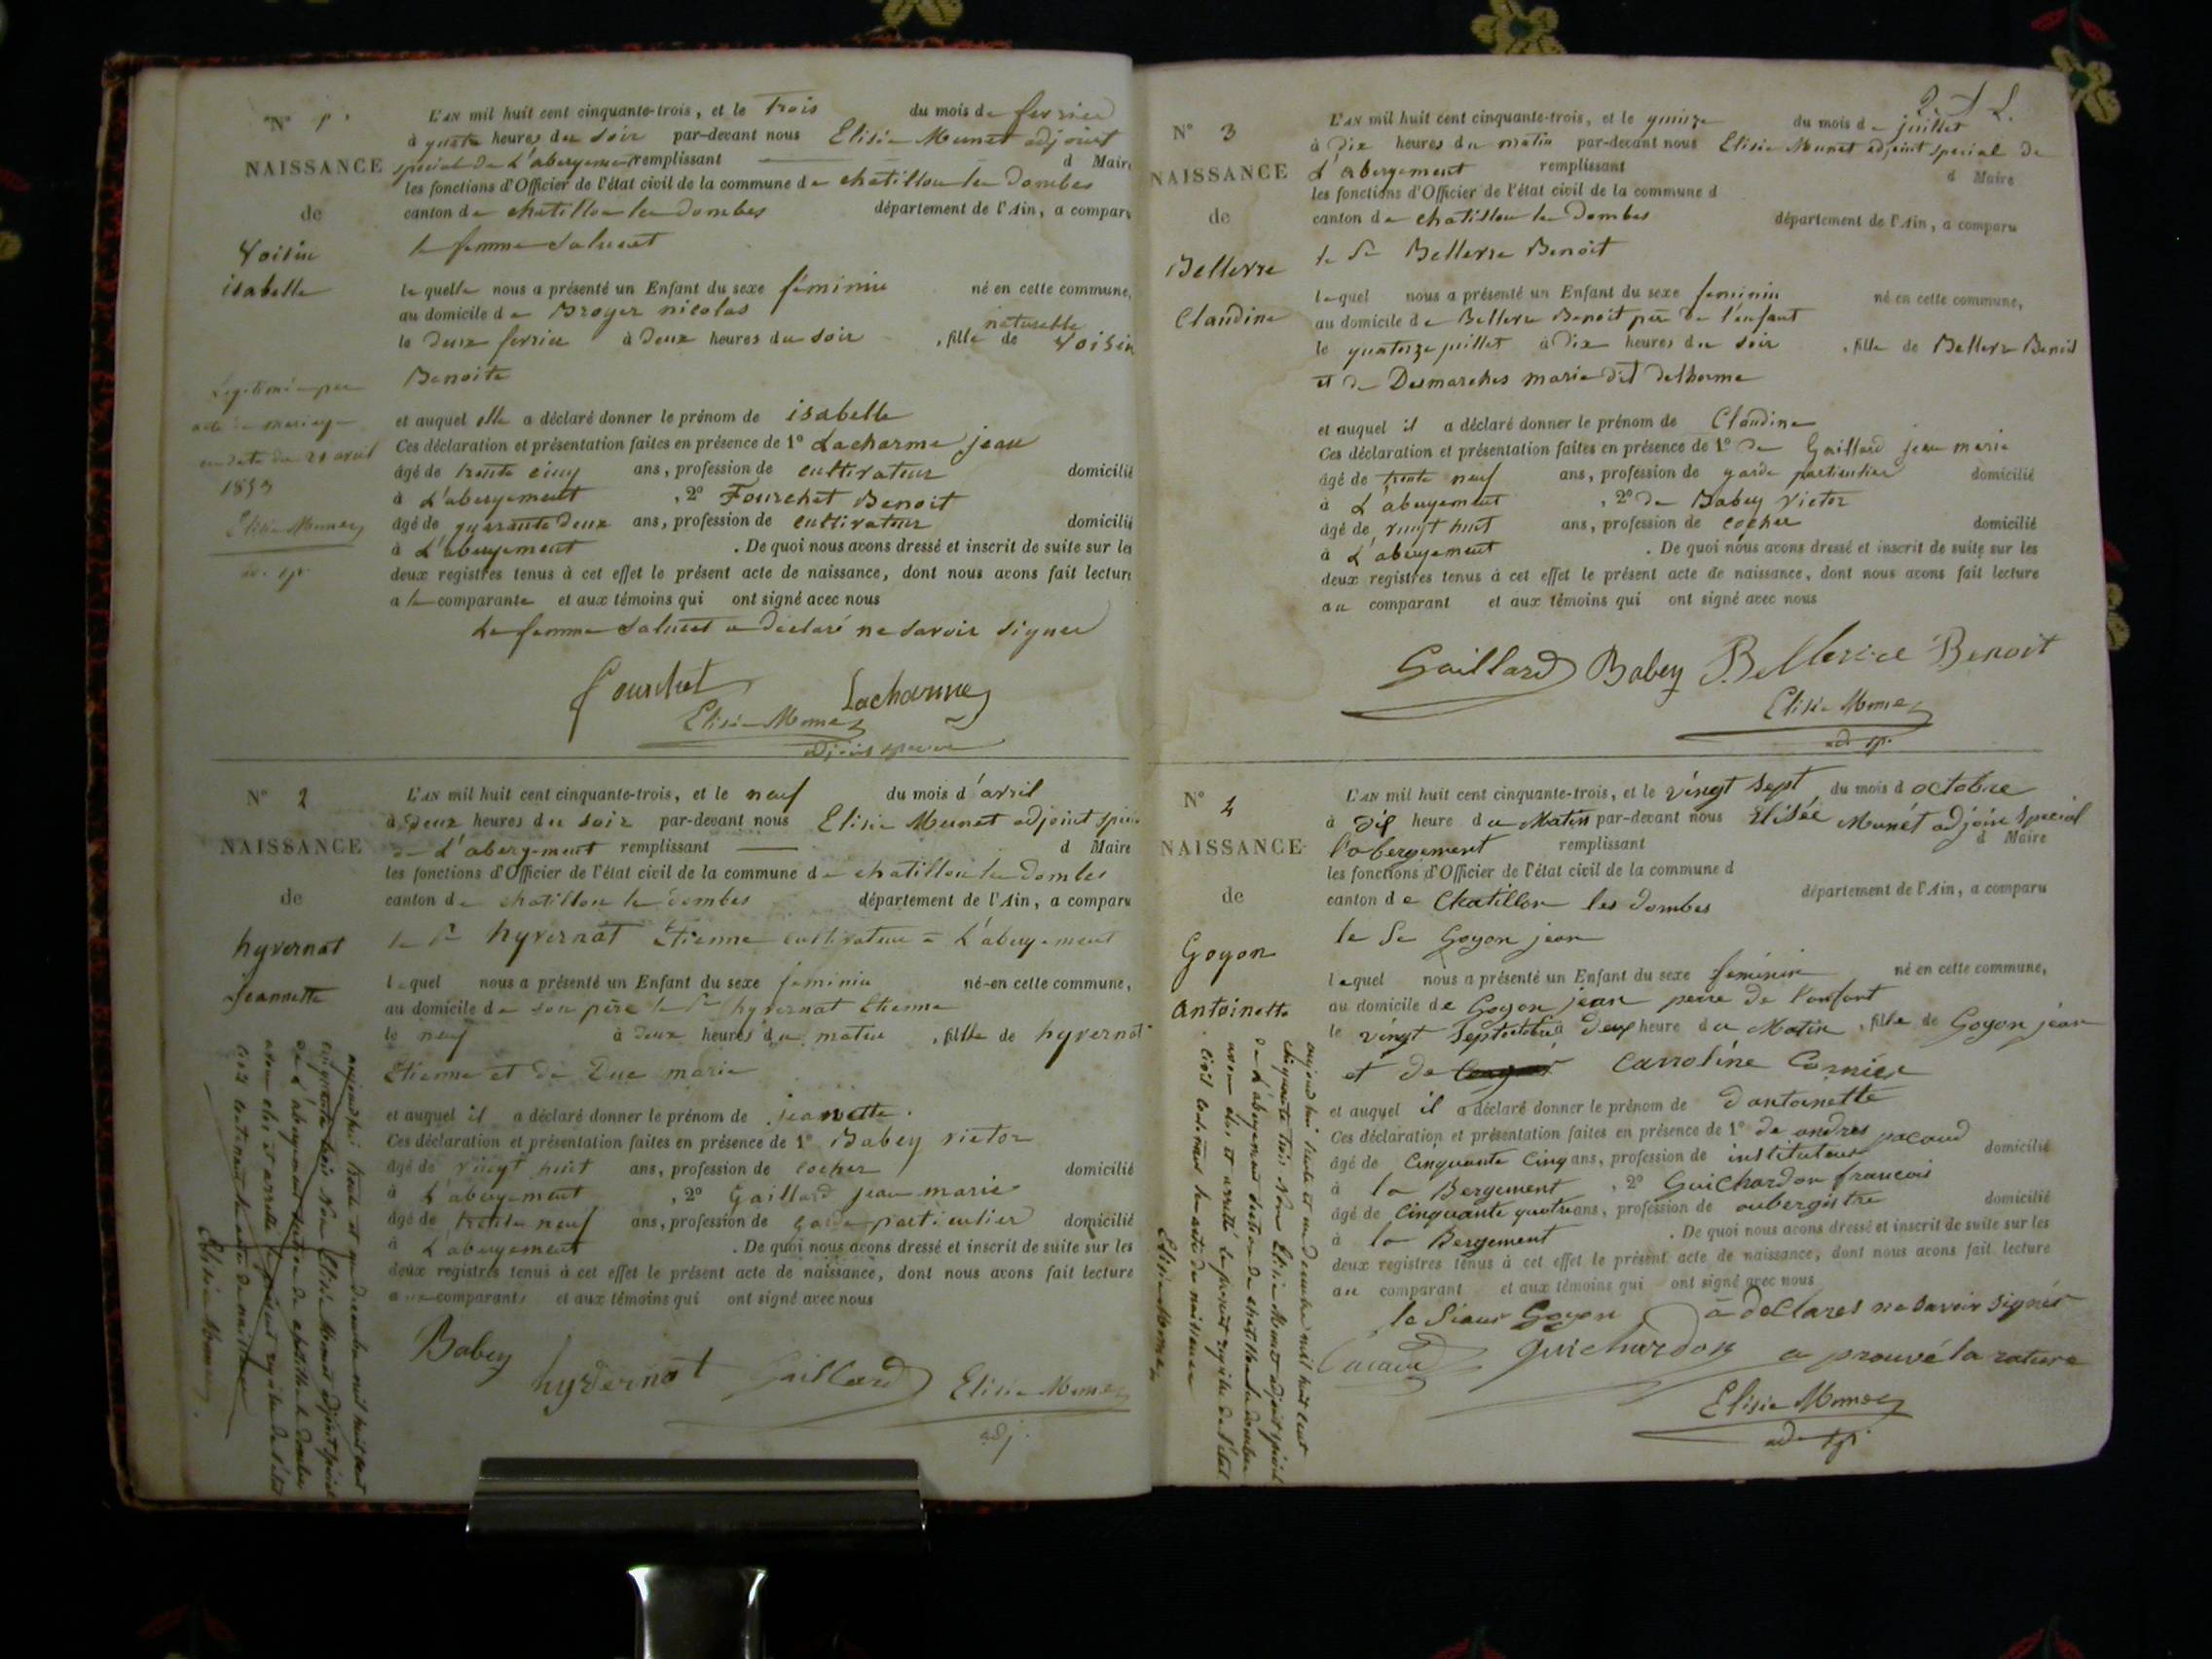 N° 1
NAISSANCE
de
Voisin
isabelle
Légitimée par
acte de mariage
en date du 21 avril
1853
Elisée Munet
ad. sp.
L'AN mil huit cent cinquante-trois, et le trois du mois de fevrier
à quatre heures du soir par-devant nous Elisée Munet adjoint
spécial de L'abergement remplissant d Maire
les fonctions d'Officier de l'état civil de la commune de chatillon les Dombes
canton de chatillon les dombes département de l'Ain, a comparu
la femme Salucet
laquelle nous a présenté un Enfant du sexe féminin né en cette commune,
au domicile de Broyer nicolas
le deux fevrier à deux heures du soir, fille naturelle de Voisin
Benoite
et auquel elle a déclaré donner le prénom de isabelle
Ces déclaration et présentation faites en présence de 1° Lacharme jean
âgé de trente cinq ans, profession de cultivateur domicilié
à L'abergement, 2° Fourchet Benoit
âgé de quarante deux ans, profession de cultivateur domicilié
à L'abergement. De quoi nous avons dressé et inscrit de suite sur les
deux registres tenus à cet effet le présent acte de naissance, dont nous avons fait lecture
a la comparante et aux témoins qui ont signé avec nous
La femme Salucet a déclaré ne savoir signer
Fourchet Lacharme
Elisée Munet
adjoint special
N° 2
NAISSANCE
de
hyvernat
Jeannette
L'AN mil huit cent cinquante-trois, et le neuf du mois d'avril
à deux heures du soir par-devant nous Elisée Munet adjoint spécial
de L'abergement remplissant d Maire
les fonctions d'Officier de l'état civil de la commune de chatillon les Dombes
canton de chatillon les dombes département de l'Ain, a comparu
le Sr hyvernat Etienne cultivateur a L'abergement
lequel nous a présenté un Enfant du sexe feminin né en cette commune,
au domicile de son père le Sr hyvernat Etienne
le neuf à deux heures du matin, fille de hyvernat
Etienne et de Duc marie
et auquel il a déclaré donner le prénom de jeanette.
Ces déclaration et présentation faites en présence de 1° Babey victor
âgé de vingt huit ans, profession de cocher domicilié
à L'abergement, 2° Gaillard jean marie
âgé de trente neuf ans, profession de garde particulier domicilié
à L'abergement. De quoi nous avons dressé et inscrit de suite sur les
deux registres tenus à cet effet le présent acte de naissance, dont nous avons fait lecture
aux comparants et aux témoins qui ont signé avec nous
Babey hyvernat Gaillard Elisée Munet
adj.
aujourdhui trente et un decembre mil huit cent
cinquante trois Nous Elisée Munet adjoint spécial
de L'abergement section de chatillon les dombes
avons clos et arretté le présent registre de l'état
civil contenant actes de naissance
Elisée Munet
2. L.
N° 3
NAISSANCE
de
Bellevre
Claudine
L'AN mil huit cent cinquante-trois, et le quinze du mois de juillet
à dix heures du matin par-devant nous Elisée Munet adjoint special de
L'abergement remplissant d Maire
les fonctions d'Officier de l'état civil de la commune d
canton de chatillon les Dombes département de l'Ain, a comparu
le Sr Bellevre Benoit
lequel nous a présenté un Enfant du sexe feminin né en cette commune,
au domicile de Bellevre Benoit père de l'enfant
le quatorze juillet à dix heures du soir, fille de Bellevre Benoit
et de Desmarches marie dit delhorme
et auquel il a déclaré donner le prénom de Claudine
Ces déclaration et présentation faites en présence de 1° de Gaillard jean marie
âgé de trente neuf ans, profession de garde particulier domicilié
à L'abergement, 2° de Babey Victor
âgé de vingt huit ans, profession de cocher domicilié
à L'abergement. De quoi nous avons dressé et inscrit de suite sur les
deux registres tenus à cet effet le présent acte de naissance, dont nous avons fait lecture
au comparant et aux témoins qui ont signé avec nous
Gaillard Babey Benoit
Elisée Munet
ad sp.
N° 4
NAISSANCE
de
Goyon
Antoinette
L'AN mil huit cent cinquante-trois, et le vingt sept du mois d octobre
à dix heure du Matin par-devant nous Elisée Munét adjoin special
l'abergement remplissant d Maire
les fonctions d'Officier de l'état civil de la commune d
canton de Chatillon les Dombes département de l'Ain, a comparu
le Se Goyon jean
lequel nous a présenté un Enfant du sexe feminin né en cette commune,
au domicile de Goyon jean perre de l'anfant
le vingt Sept à deux heure du Matin, fille de Goyon jean
et de Carroline Cornier
et auquel il a déclaré donner le prénom de d antoinette
Ces déclaration et présentation faites en présence de 1° de andres pacaud
âgé de Cinquante Cinq ans, profession de instituteur domicilié
à la Bergement, 2° Guichardon francois
âgé de Cinquante quatre ans, profession de aubergistre domicilié
à la Bergement. De quoi nous avons dressé et inscrit de suite sur les
deux registres tenus à cet effet le présent acte de naissance, dont nous avons fait lecture
au comparant et aux témoins qui ont signé avec nous
le Sieur Goyon à déClares ne savoir signer
Pacaud guichardon a prouvé la rature
Elisée Munet
ad sp.
aujourdhui trente et un decembre mil huit cent
cinquante trois Nous Elisée Munet adjoint spécial
de L'abergement section de chatillon les dombes
avons clos et arretté le présent registre de l'état
civil contenant les actes de naissance
Elisée Munet